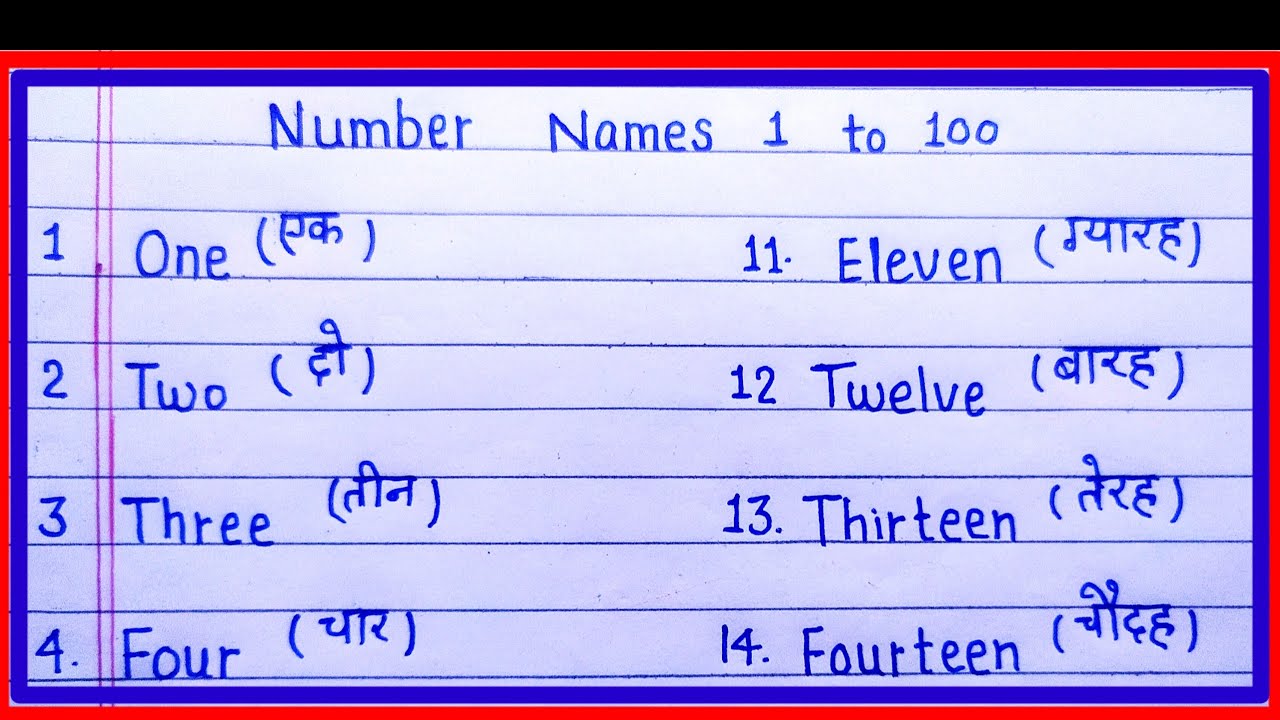 Number Names 1 to 100
1 One (एक) 11. Eleven (ग्यारह)
2 Two (दो) 12 Twelve (बारह)
3 Three (तीन) 13. Thirteen (तेरह)
4. Four (चार) 14. Fourteen (चौदह)